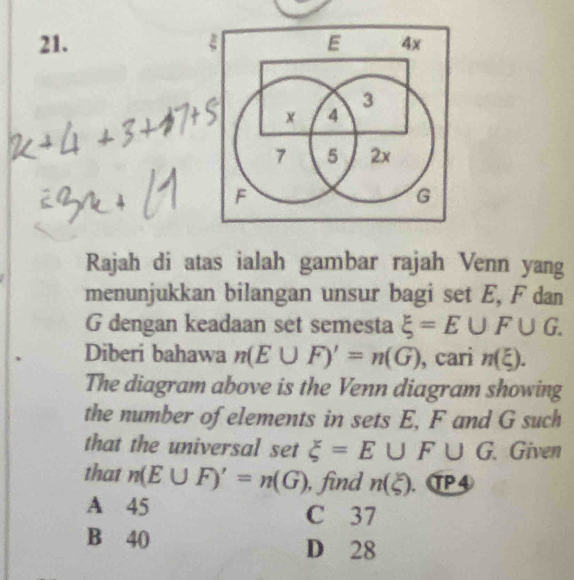 21.
ξ E 4x
x 4 3
7 5 2x
F G
x + 4 + 3 + 7 + 5
= 3x + 19
Rajah di atas ialah gambar rajah Venn yang
menunjukkan bilangan unsur bagi set E, F dan
G dengan keadaan set semesta ξ = E ∪ F ∪ G.
Diberi bahawa n(E ∪ F)′ = n(G), cari n(ξ).
The diagram above is the Venn diagram showing
the number of elements in sets E, F and G such
that the universal set ξ = E ∪ F ∪ G. Given
that n(E ∪ F)′ = n(G), find n(ξ). TP4
A 45
C 37
B 40
D 28